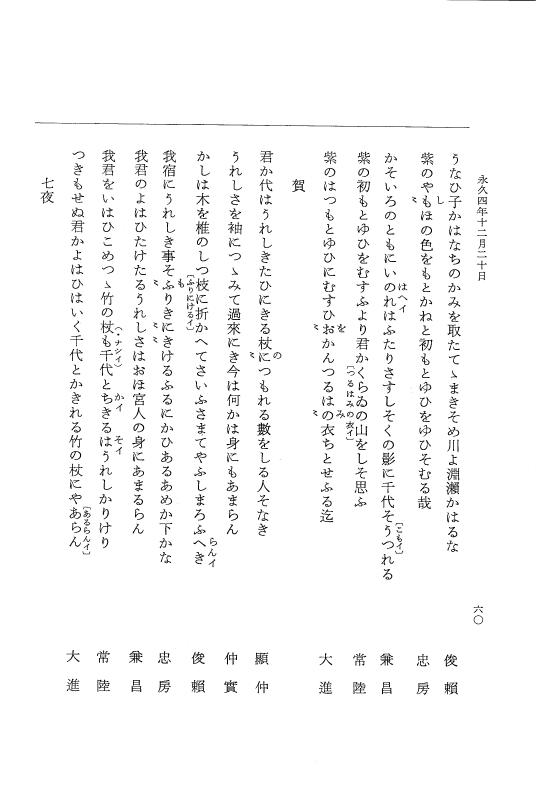 永久四年十二月二十日
六〇
うなひ子かはなちのかみを取たてゝまきそめ川よ淵瀬かはるな 俊賴
紫のやもほの色をもとかねと初もとゆひをゆひそむる哉 忠房
し
かそいろのともにいのれはふたりさすしそくの影に千代そうつれる 兼昌
はへイ
〔こもイ〕
紫の初もとゆひをむすふより君かくらゐの山をしそ思ふ 常陸
〔つるはみの衣イ〕
紫のはつもとゆひにむすひおかんつるはの衣ちとせふる迄 大進
を
み
賀
君か代はうれしきたひにきる杖につもれる數をしる人そなき 顯仲
の
うれしさを袖につゝみて過來にき今は何かは身にもあまらん 仲實
かしは木を椎のしつ枝に折かへてさいふさまてやふしまろふへき 俊賴
〔ふりにけるイ〕
らんイ
我宿にうれしき事そふりきにきけるふるにかひあるあめか下かな 忠房
も
我君のよはひたけたるうれしさはおほ宮人の身にあまるらん 兼昌
我君をいはひこめつゝ竹の杖も千代とちきるはうれしかりけり 常陸
（・ナシイ）
かイ
そイ
つきもせぬ君かよはひはいく千代とかきれる竹の杖にやあらん 大進
〔あるらんイ〕
七夜